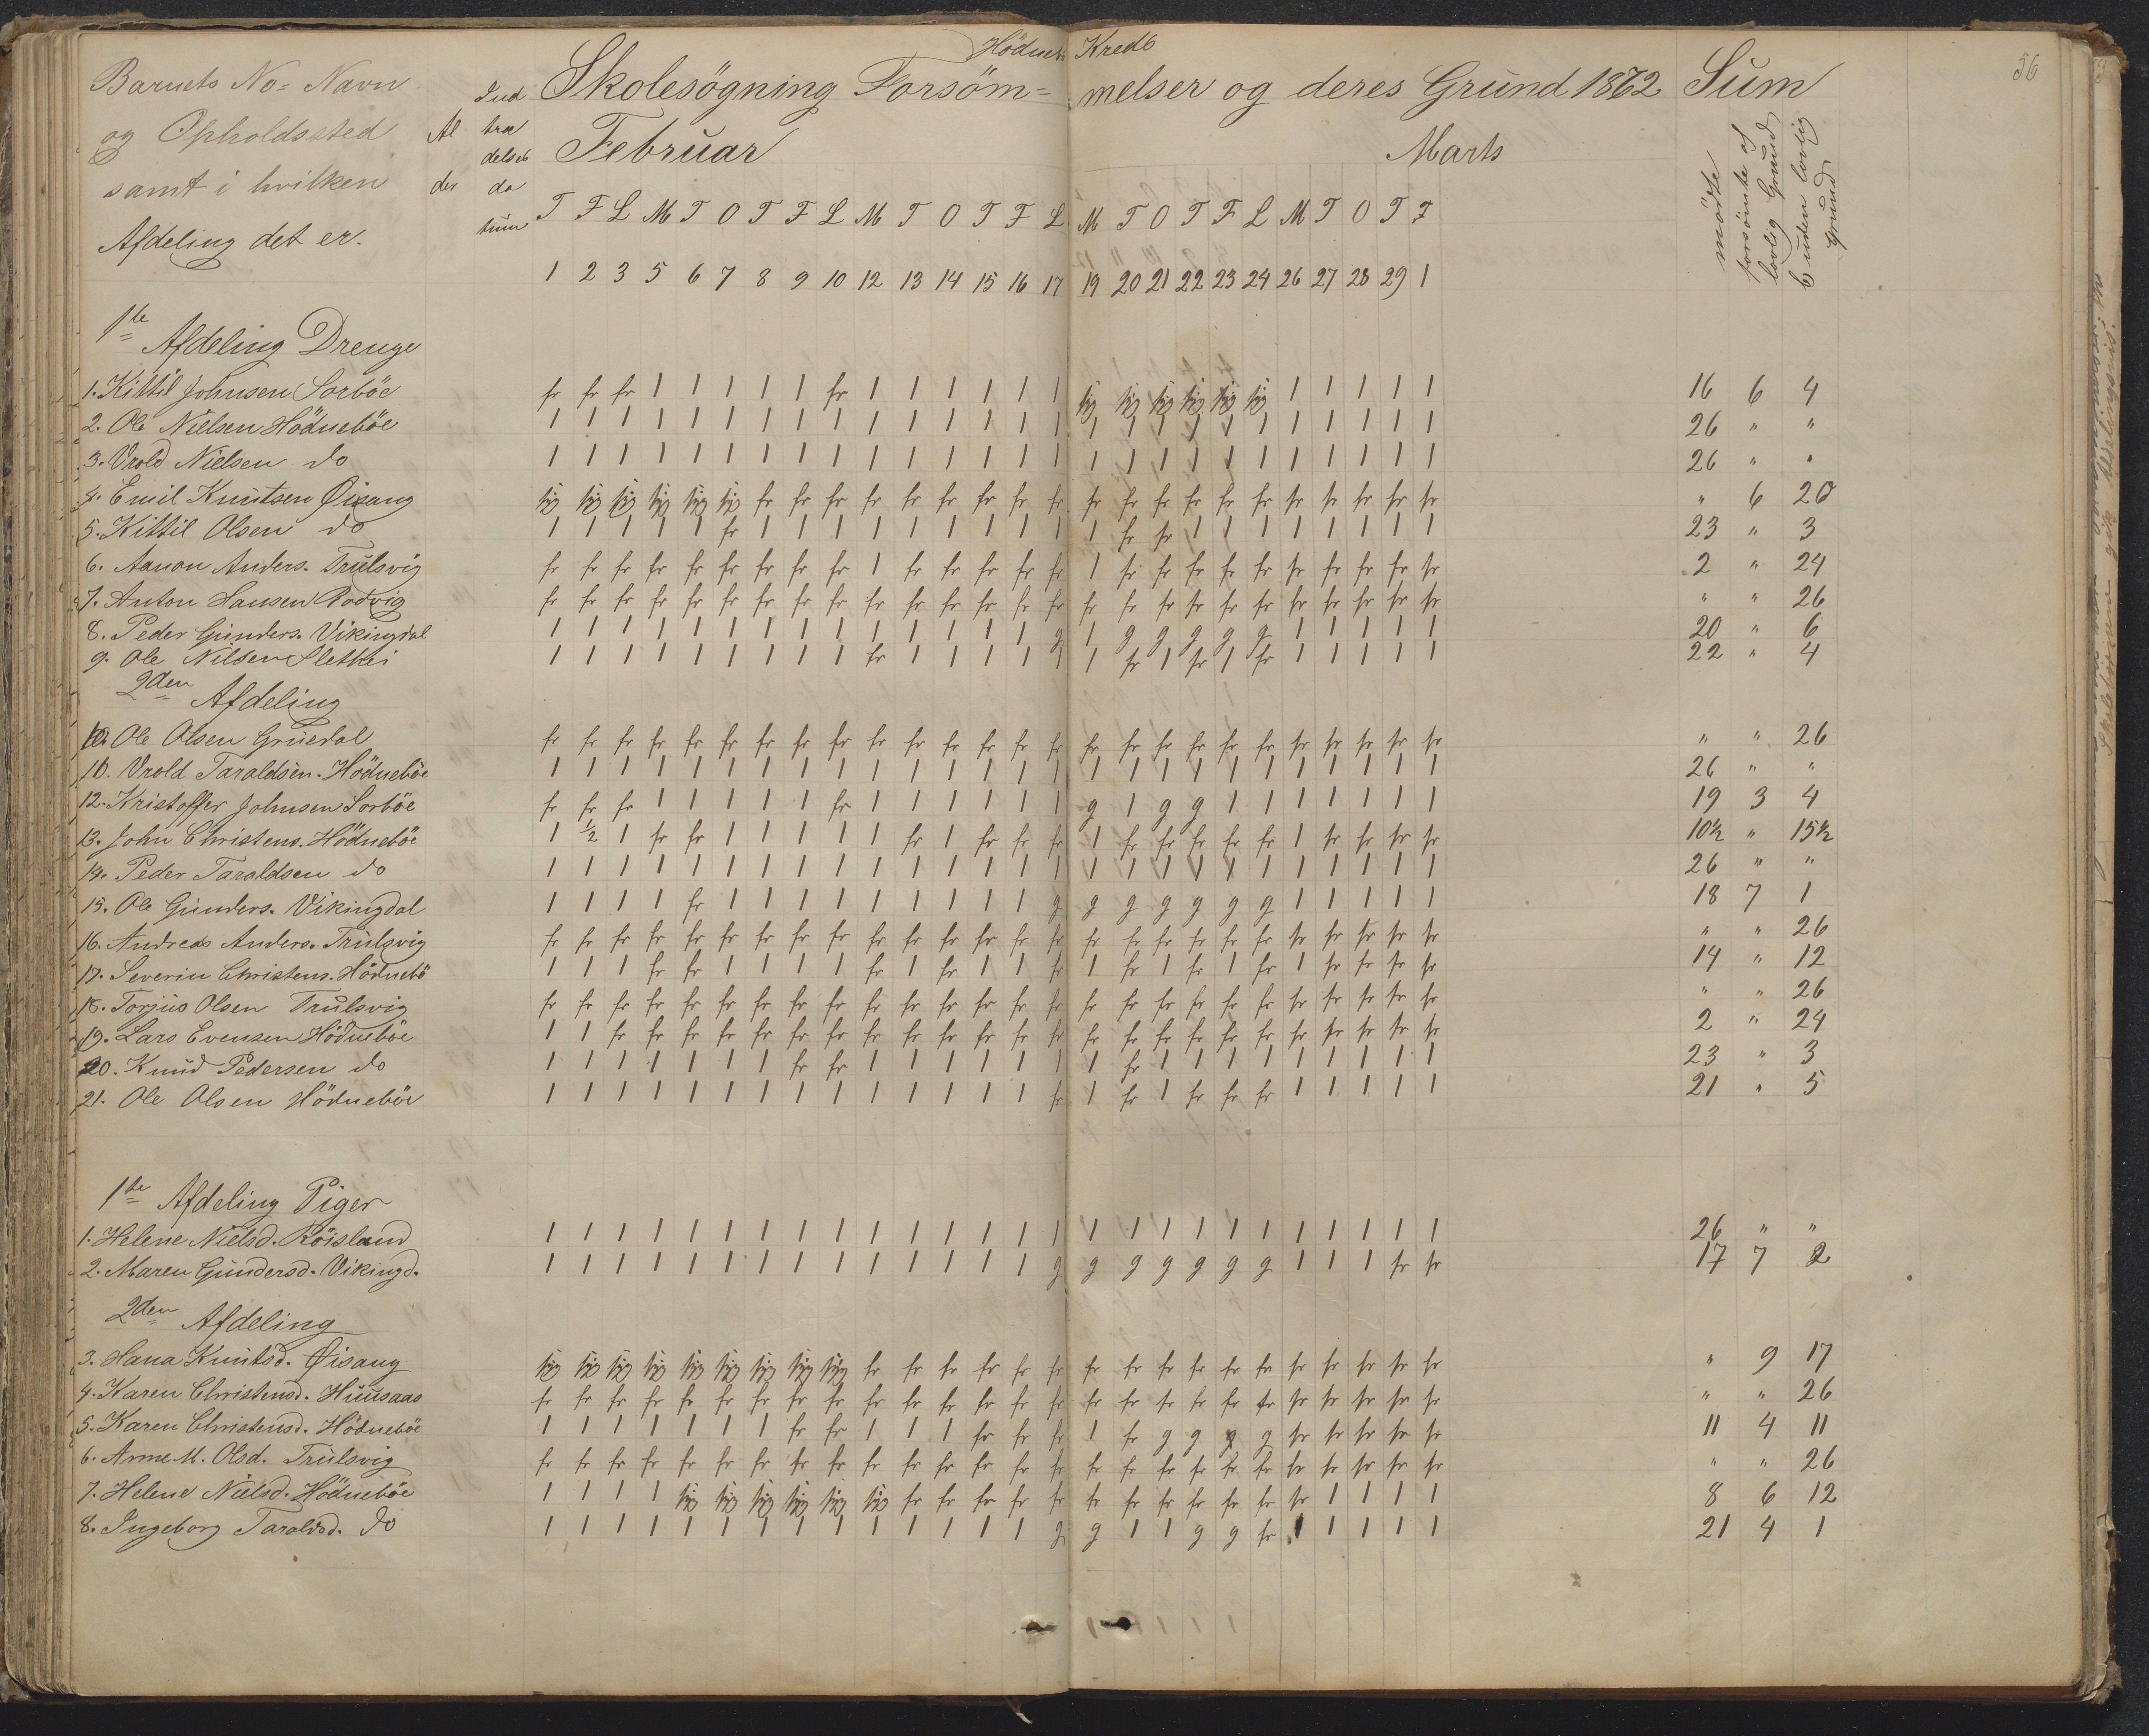 Hödneb. Kreds
56
Barnets No= Navn og Opholdssted samt i hvilken Afdeling det er.
Al der
Ind træ delses da tum
Skolesögning Forsöm= melser og deres Grund 1872 Sum
Februar Marts
mödte
forsömte af lovlig Grund
uden lovlig Grund
T F L M T O T F L M T O T F L M T O T F L M T O T F
1 2 3 5 6 7 8 9 10 12 13 14 15 16 17 19 20 21 22 23 24 26 27 28 29 1
1te Afdeling Drenge
1. Kittil Johnsen Sorböe fr fr fr 1 1 1 1 1 fr 1 1 1 1 1 1 syg syg syg syg syg syg 1 1 1 1 1 16 6 4
2. Ole Nielsen Hödneböe 1 1 1 1 1 1 1 1 1 1 1 1 1 1 1 1 1 1 1 1 1 1 1 1 1 1 26 " "
3. Vrold Nielsen do 1 1 1 1 1 1 1 1 1 1 1 1 1 1 1 1 1 1 1 1 1 1 1 1 1 1 26 " "
4. Emil Knutsen Øisang syg syg syg syg syg syg fr fr fr fr fr fr fr fr fr fr fr fr fr fr fr fr fr fr fr fr " 6 20
5. Kittil Olsen do 1 1 1 1 1 fr 1 1 1 1 1 1 1 1 1 1 fr fr 1 1 1 1 1 1 1 1 23 " 3
6. Aanon Anders. Trulsvig fr fr fr fr fr fr fr fr fr 1 fr fr fr fr fr 1 fr fr fr fr fr fr fr fr fr fr 2 " 24
7. Anton Hansen Rodvig fr fr fr fr fr fr fr fr fr fr fr fr fr fr fr fr fr fr fr fr fr fr fr fr fr fr " " 26
8. Peder Gunders. Vikingdal 1 1 1 1 1 1 1 1 1 1 1 1 1 1 g 1 g g g g g 1 1 1 1 1 20 " 6
9. Ole Nilsen Slethei 1 1 1 1 1 1 1 1 1 fr 1 1 1 1 1 1 fr 1 fr 1 fr 1 1 1 1 1 22 " 4
2den Afdeling
10. Ole Olsen Gruedal fr fr fr fr fr fr fr fr fr fr fr fr fr fr fr fr fr fr fr fr fr fr fr fr fr fr " " 26
11. Vrold Taraldsen. Hödneböe 1 1 1 1 1 1 1 1 1 1 1 1 1 1 1 1 1 1 1 1 1 1 1 1 1 1 26 " "
12. Kristoffer Johnsen Sorböe fr fr fr 1 1 1 1 1 fr 1 1 1 1 1 1 g 1 g g 1 1 1 1 1 1 1 19 3 4
13. John Christens. Hödneböe 1 1/2 1 fr fr 1 1 1 1 1 fr 1 fr fr fr 1 fr fr fr fr fr 1 fr fr fr fr 10½ " 15½
14. Peder Taraldsen do 1 1 1 1 1 1 1 1 1 1 1 1 1 1 1 1 1 1 1 1 1 1 1 1 1 1 26 " "
15. Ole Gunders. Vikingdal 1 1 1 1 fr 1 1 1 1 1 1 1 1 1 g g g g g g g 1 1 1 1 1 18 7 1
16. Andreas Anders. Trulsvig fr fr fr fr fr fr fr fr fr fr fr fr fr fr fr fr fr fr fr fr fr fr fr fr fr fr " " 26
17. Severin Christens. Hödnebö 1 1 1 fr fr 1 1 1 1 fr 1 fr 1 1 fr 1 fr 1 fr 1 fr 1 fr fr fr fr 14 " 12
18. Torjus Olsen Trulsvig fr fr fr fr fr fr fr fr fr fr fr fr fr fr fr fr fr fr fr fr fr fr fr fr fr fr " " 26
19. Lars Evensen Hödneböe 1 1 fr fr fr fr fr fr fr fr fr fr fr fr fr fr fr fr fr fr fr fr fr fr fr fr 2 " 24
20. Knud Pedersen do 1 1 1 1 1 1 1 fr fr 1 1 1 1 1 1 1 fr 1 1 1 1 1 1 1 1 1 23 " 3
21. Ole Olsen Hödneböe 1 1 1 1 1 1 1 1 1 1 1 1 1 1 fr 1 fr 1 fr fr fr 1 1 1 1 1 21 " 5
1te Afdeling Piger
1. Helene Nielsd. Röisland 1 1 1 1 1 1 1 1 1 1 1 1 1 1 1 1 1 1 1 1 1 1 1 1 1 1 26 " "
2. Maren Gundersd. Vikingd. 1 1 1 1 1 1 1 1 1 1 1 1 1 1 g g g g g g g 1 1 1 fr fr 17 7 2
2den Afdeling
3. Hana Knutsd. Øisang syg syg syg syg syg syg syg syg syg fr fr fr fr fr fr fr fr fr fr fr fr fr fr fr fr fr " 9 17
4. Karen Christensd. Huusaas fr fr fr fr fr fr fr fr fr fr fr fr fr fr fr fr fr fr fr fr fr fr fr fr fr fr " " 26
5. Karen Christensd. Hödneböe 1 1 1 1 1 1 1 fr fr 1 1 1 fr fr fr 1 fr g g g g fr fr fr fr fr 11 4 11
6. Anne M. Olsd. Trulsvig fr fr fr fr fr fr fr fr fr fr fr fr fr fr fr fr fr fr fr fr fr fr fr fr fr fr " " 26
7. Helene Nielsd. Hödneböe 1 1 1 1 syg syg syg syg syg syg fr fr fr fr fr fr fr fr fr fr fr fr 1 1 1 1 8 6 12
8. Ingeborg Taraldsd. do 1 1 1 1 1 1 1 1 1 1 1 1 1 1 g g 1 1 g g fr 1 1 1 1 1 21 4 1